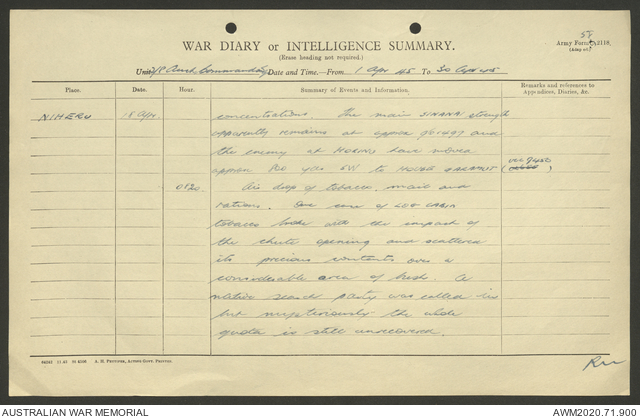 58
Army Form 2118.
WAR DIARY or INTELLIGENCE SUMMARY.
(Erase heading not required.)
Unit 2/8 Aust Commando Date and Time—From 1 Apr 45 To 30 Apr 45
Place. Date. Hour. Summary of Events and Information. Remarks and references to Appendices, Diaries, &c.
NIHERU 18 Apr. concentrations. The main SINANAI strength
apparently remains at approx 961497 and
the enemy at have moved
approx 800 yds SW to
0120. Air drop of tobacco, mail and
rations. One case of LOG CABIN
tobacco broke with the impact of
the chute opening and scattered
its precious contents over a
considerable area of bush. A
native search party was called in
but mysteriously the whole
quota is still unrecovered.
AUSTRALIAN WAR MEMORIAL
AWM2020.71.900